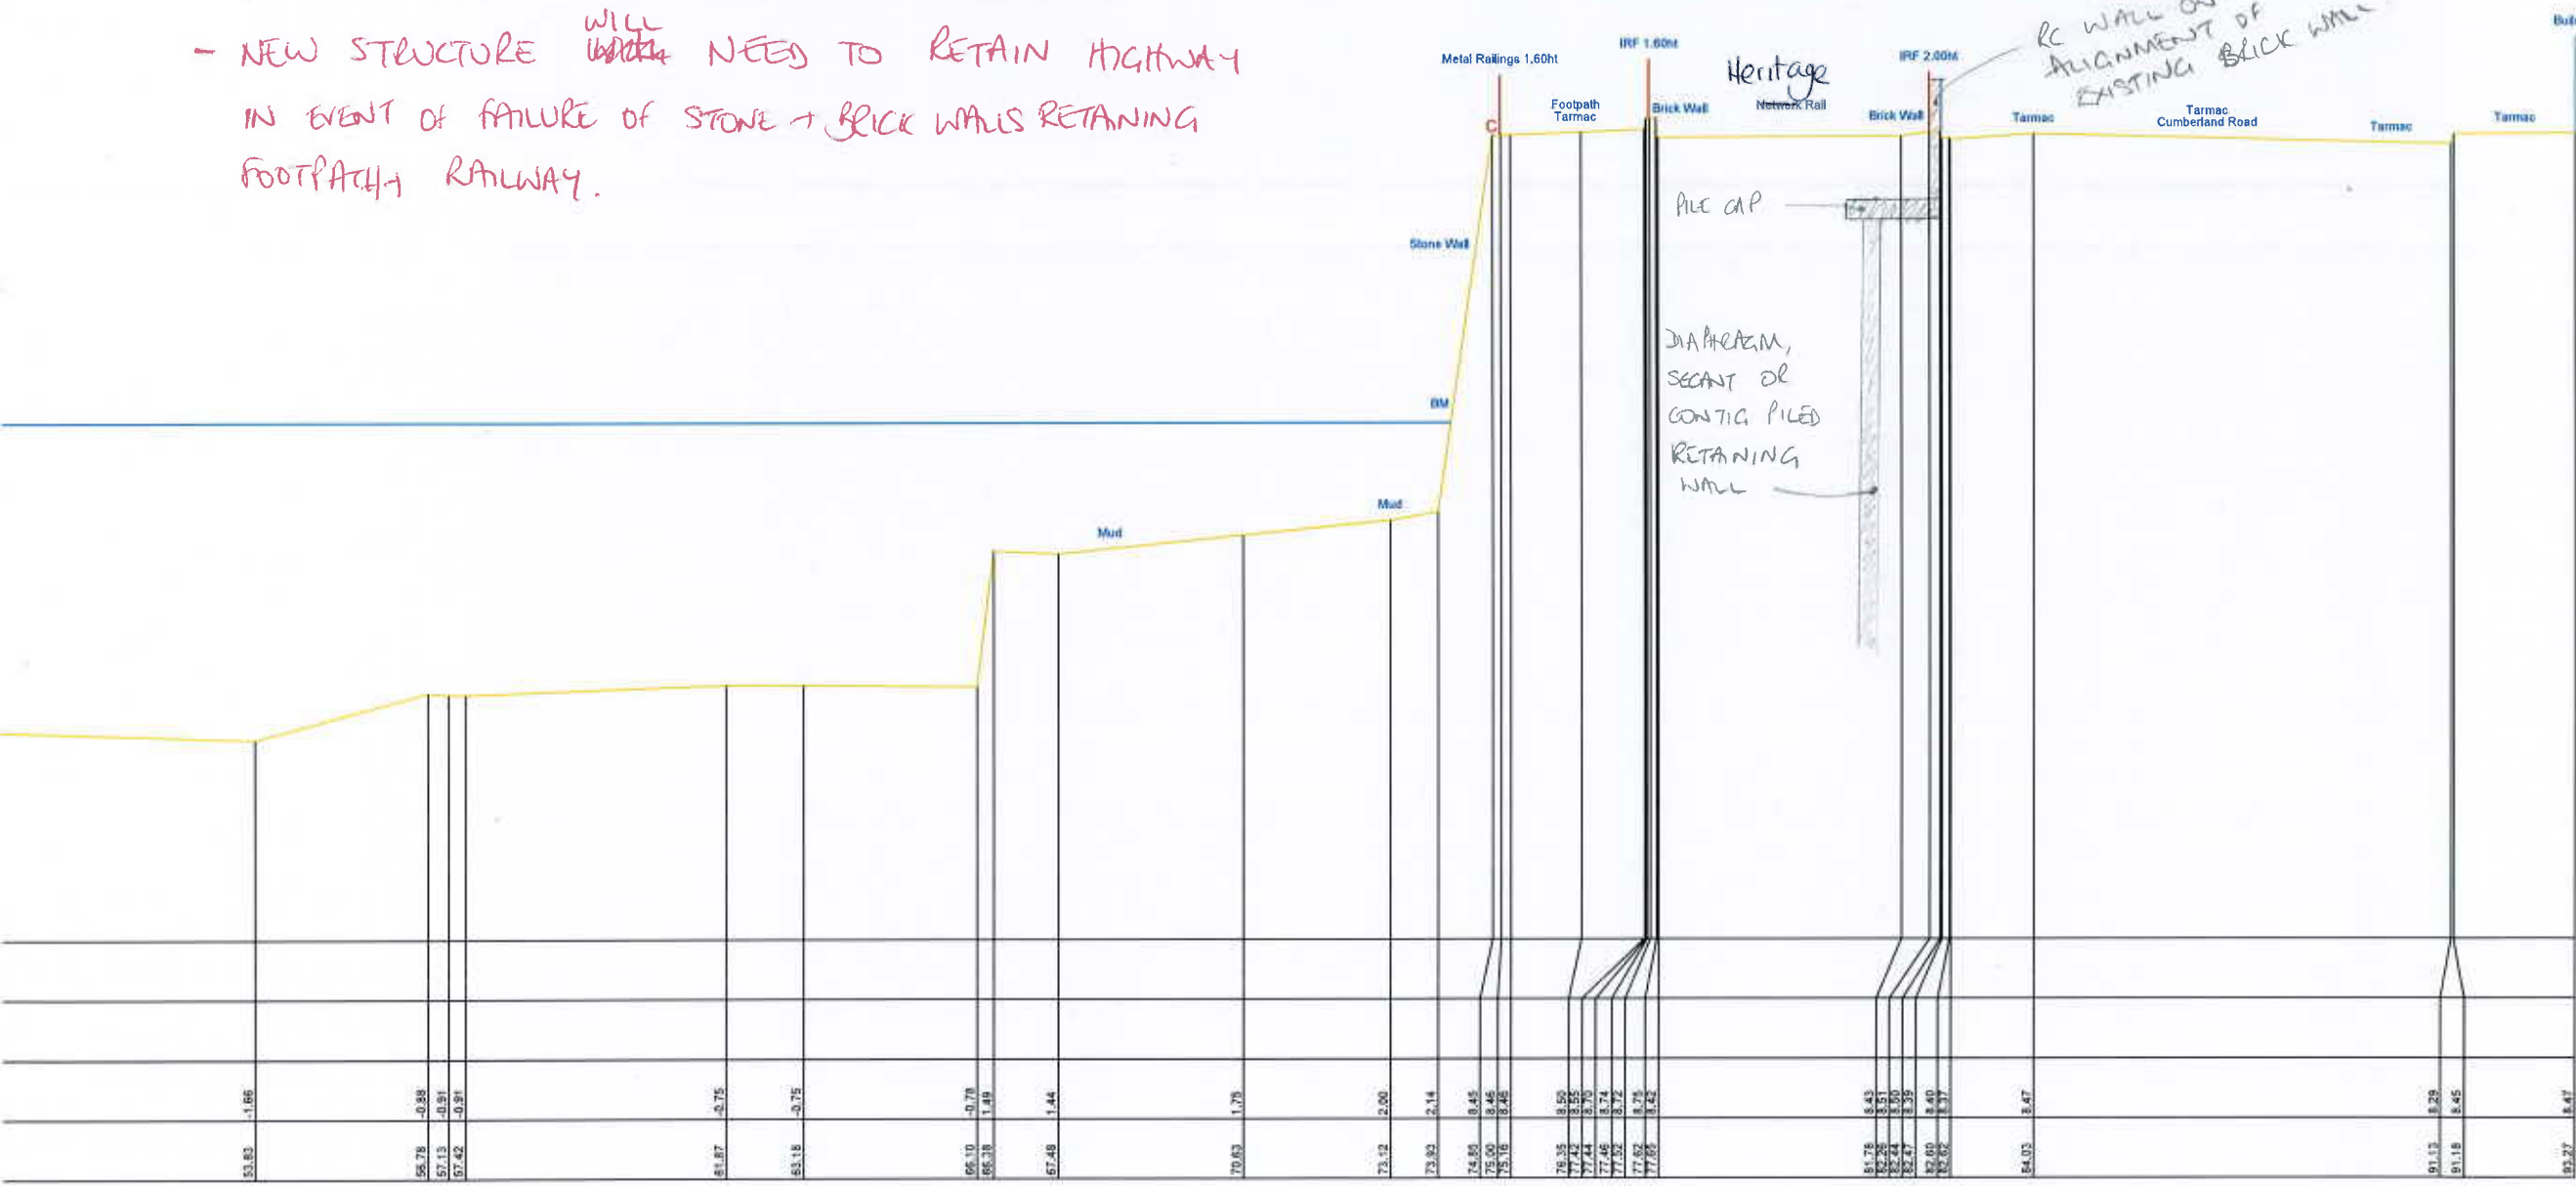 - NEW STRUCTURE WILL NEED TO RETAIN HIGHWAY
IN EVENT OF FAILURE OF STONE + BRICK WALLS RETAINING
FOOTPATH + RAILWAY.
Metal Railings 1.60ht
IRF 1.60ht
Heritage
Network Rail
IRF 2.00ht
RC WALL ON
ALIGNMENT OF
EXISTING BRICK WALL
C
Footpath
Tarmac
Brick Wall
Brick Wall
Tarmac
Tarmac
Cumberland Road
Tarmac
Tarmac
PILE CAP
Stone Wall
DIAPHRAGM,
SECANT OR
CONTIG PILED
RETAINING
WALL
BM
Mud
Mud
-1.66 -0.88 -0.91 -0.91 -0.75 -0.75 -0.78 1.49 1.44 1.75 2.00 2.14 8.45 8.46 8.46 8.50 8.55 8.70 8.74 8.72 8.75 8.42 8.43 8.51 8.50 8.39 8.40 8.37 8.47 8.29 8.45 8.47
53.83 56.78 57.13 57.42 61.87 63.18 66.10 66.38 67.48 70.63 73.12 73.93 74.85 75.00 75.18 76.35 77.42 77.44 77.46 77.52 77.62 77.65 81.78 82.26 82.44 82.47 82.60 82.62 84.03 91.13 91.18 93.27